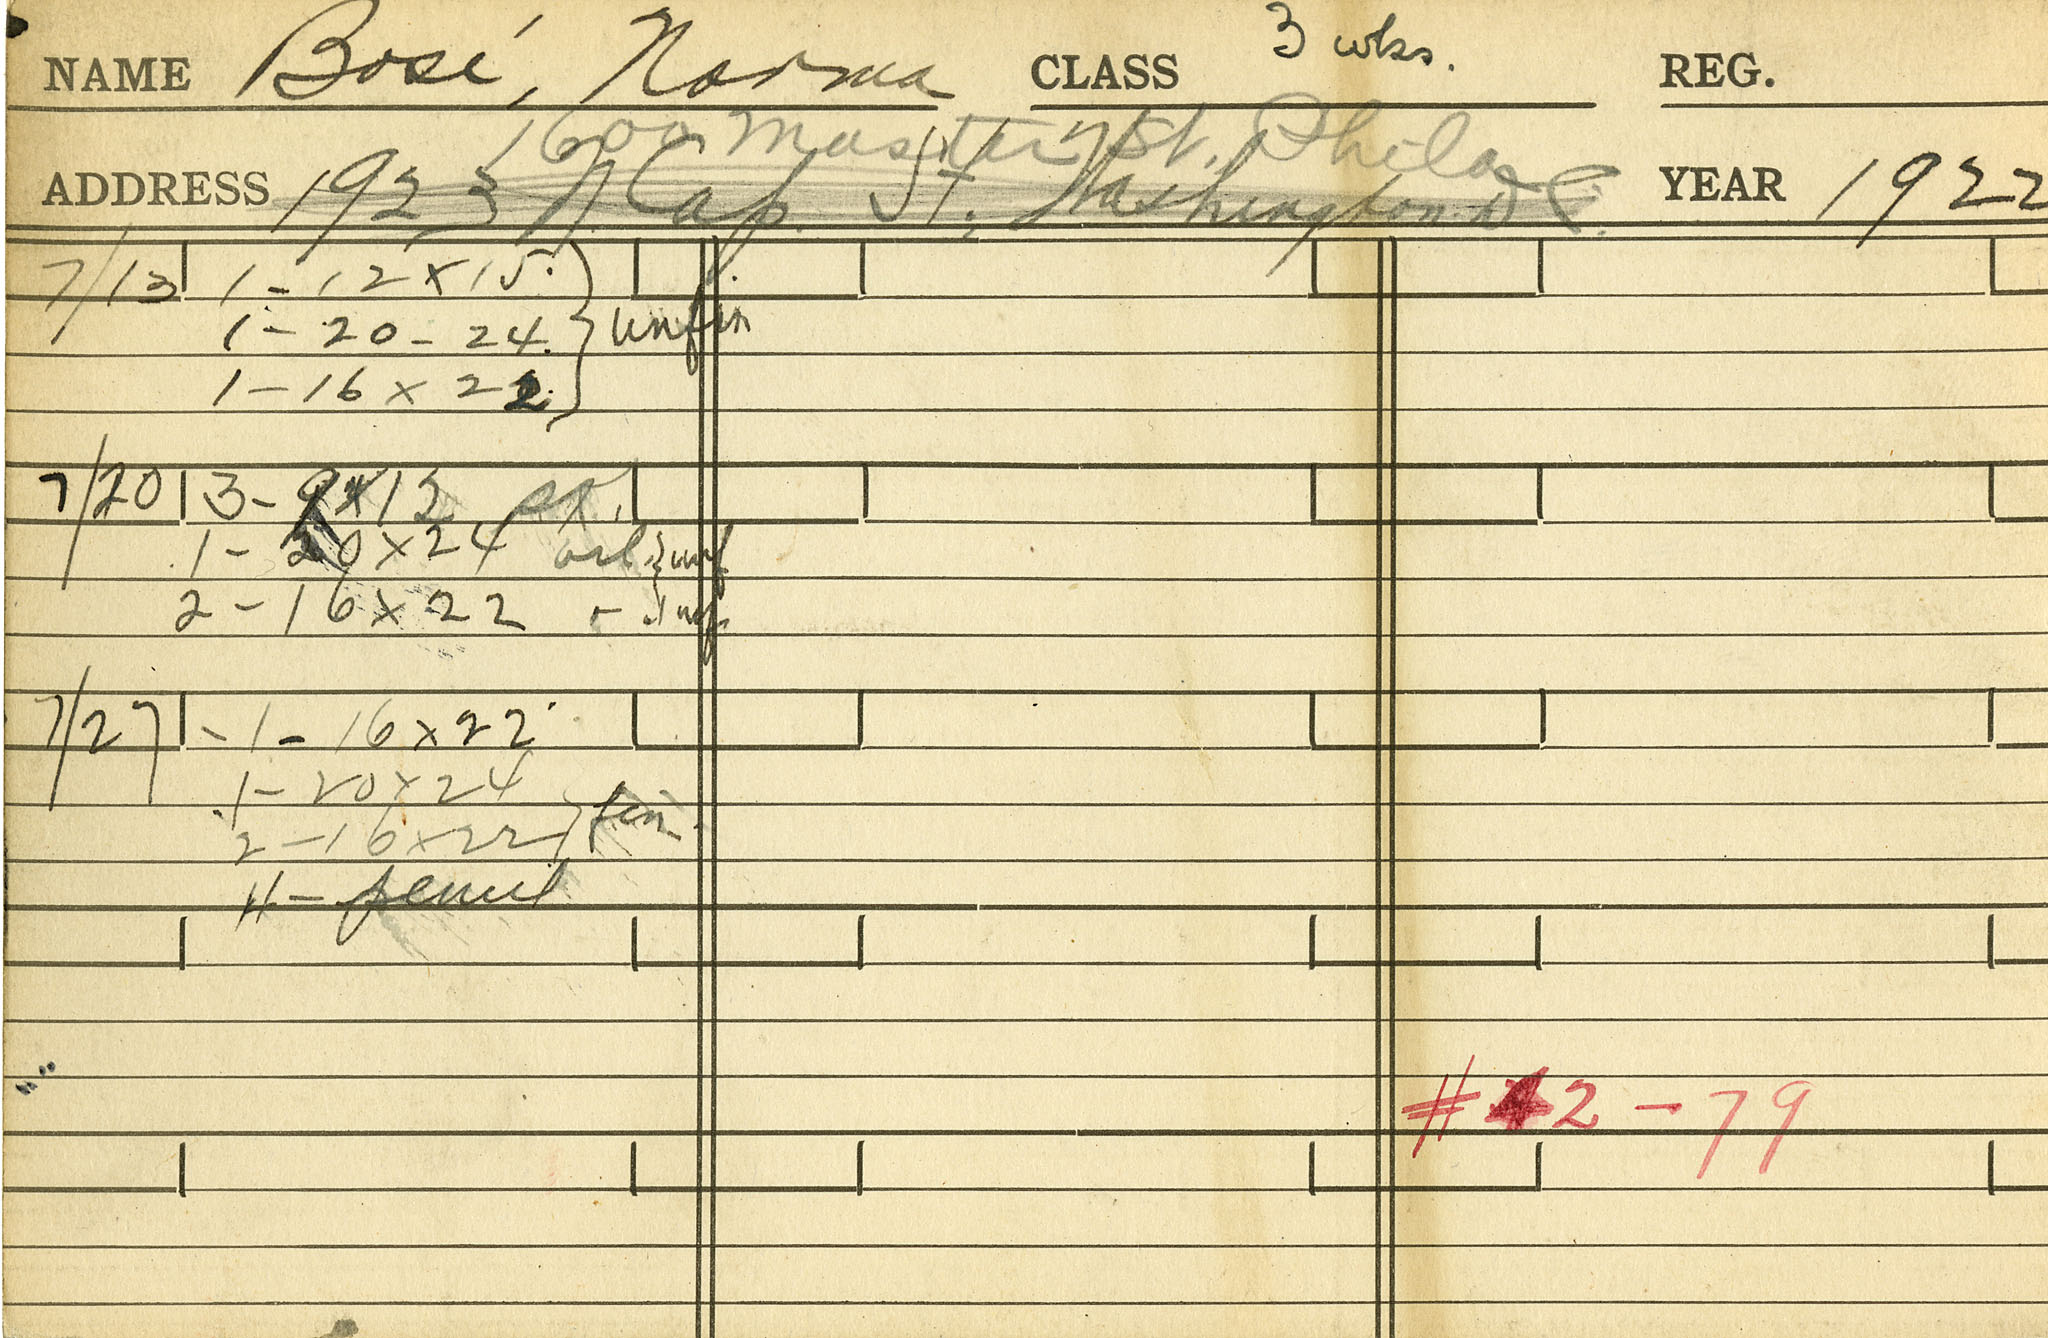 NAME Bosé, Norma CLASS 3 wks. REG.
1600 Master St. Phila
ADDRESS 1923 N. Cap. St., Washington D.C. YEAR 1922
7/13 1 - 12 x 15.
1 - 20 - 24. } unfin
1 - 16 x 22.
7/20 3 - 9 x 12
1 - 20 x 24 } unf
2 - 16 x 22 - unf.
7/27 - 1 - 16 x 22
1 - 20 x 24
2 - 16 x 22 } fin.
4 - pencil
# 2 - 79